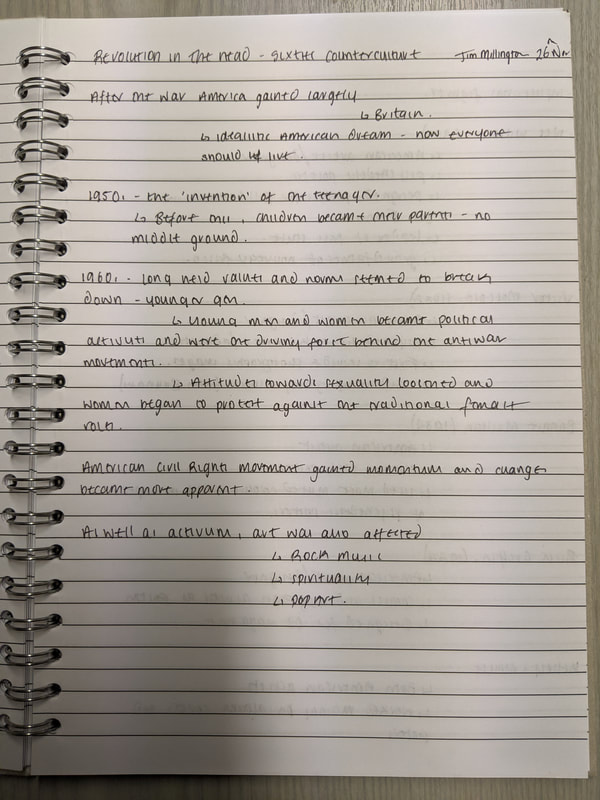 Revolution in the head - sixties counterculture Jim Millington 26 Nov
After the war America gained largely
↳ Britain.
↳ idealistic American dream - how everyone
should live.
1950s - the 'invention' of the teenager.
↳ Before this, children became their parents - no
middle ground.
1960s - long held values and norms seemed to break
down - younger gen.
↳ Young men and women became political
activists and were the driving force behind the antiwar
movements.
↳ Attitudes towards sexuality loosened and
women began to protest against the traditional female
roles.
American Civil Rights movement gained momentum and changes
became more apparent.
As well as activism, art was also affected
↳ Rock music
↳ spirituality
↳ pop art.